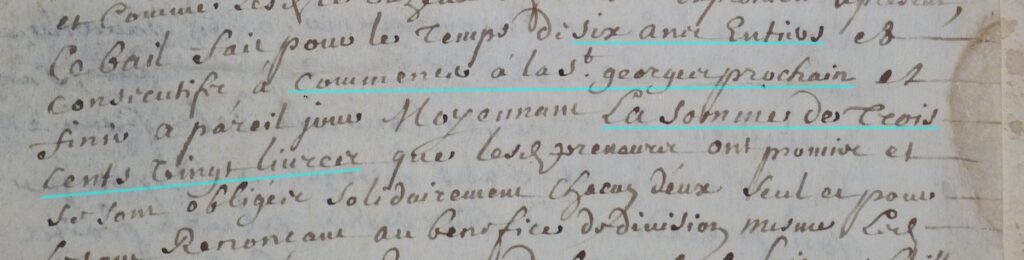 et comme
Ce bail fait pour le Temps de six ans Entiers et
Consecutifs à Commencer à la St. georges prochain et
finir a pareil jour Moyennant La Somme de Trois
Cents Vingt livres que lesd. preneurs ont promis et
se sont obligés solidairement Chacun d'eux seul et pour
Renoncant au benefice de division mesme Lesd.